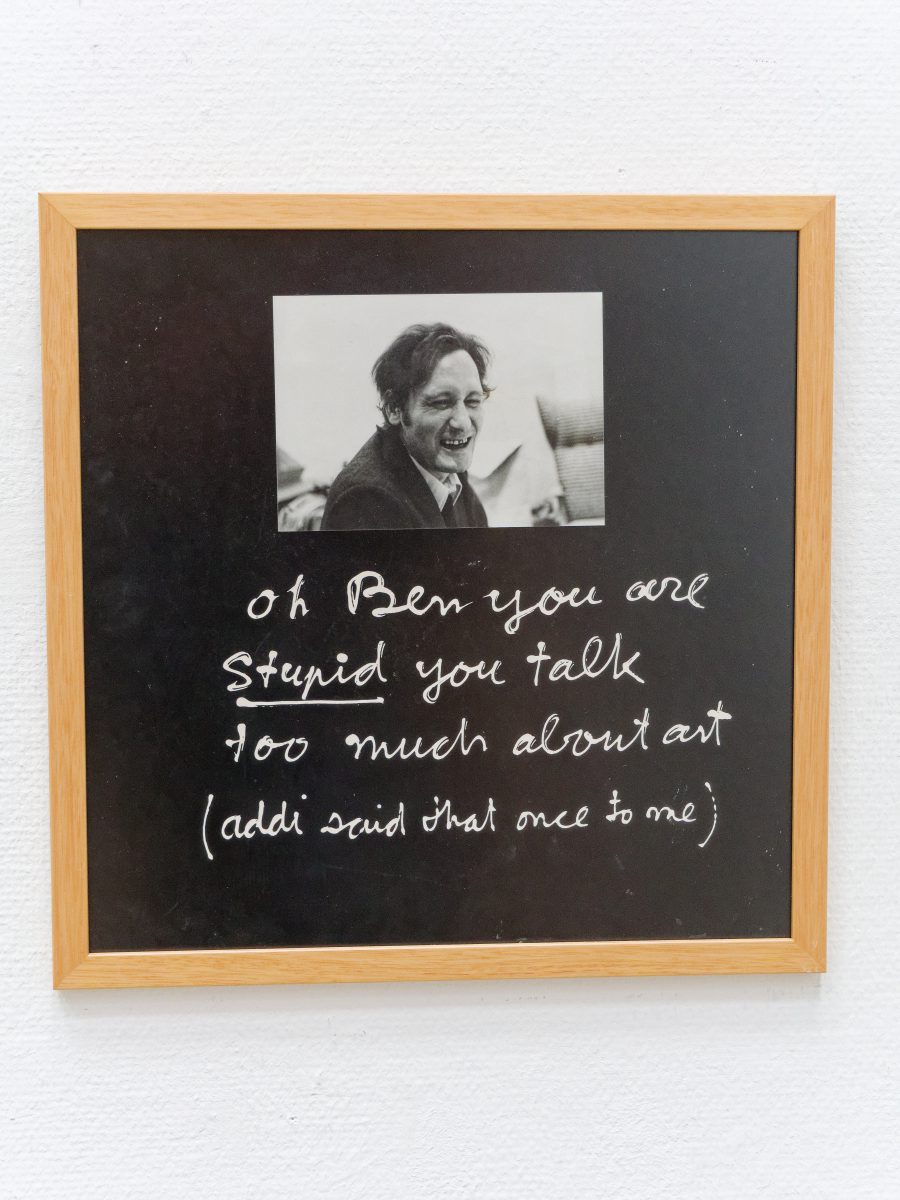 oh Ben you are
Stupid you talk
too much about art
(addi said that once to me)